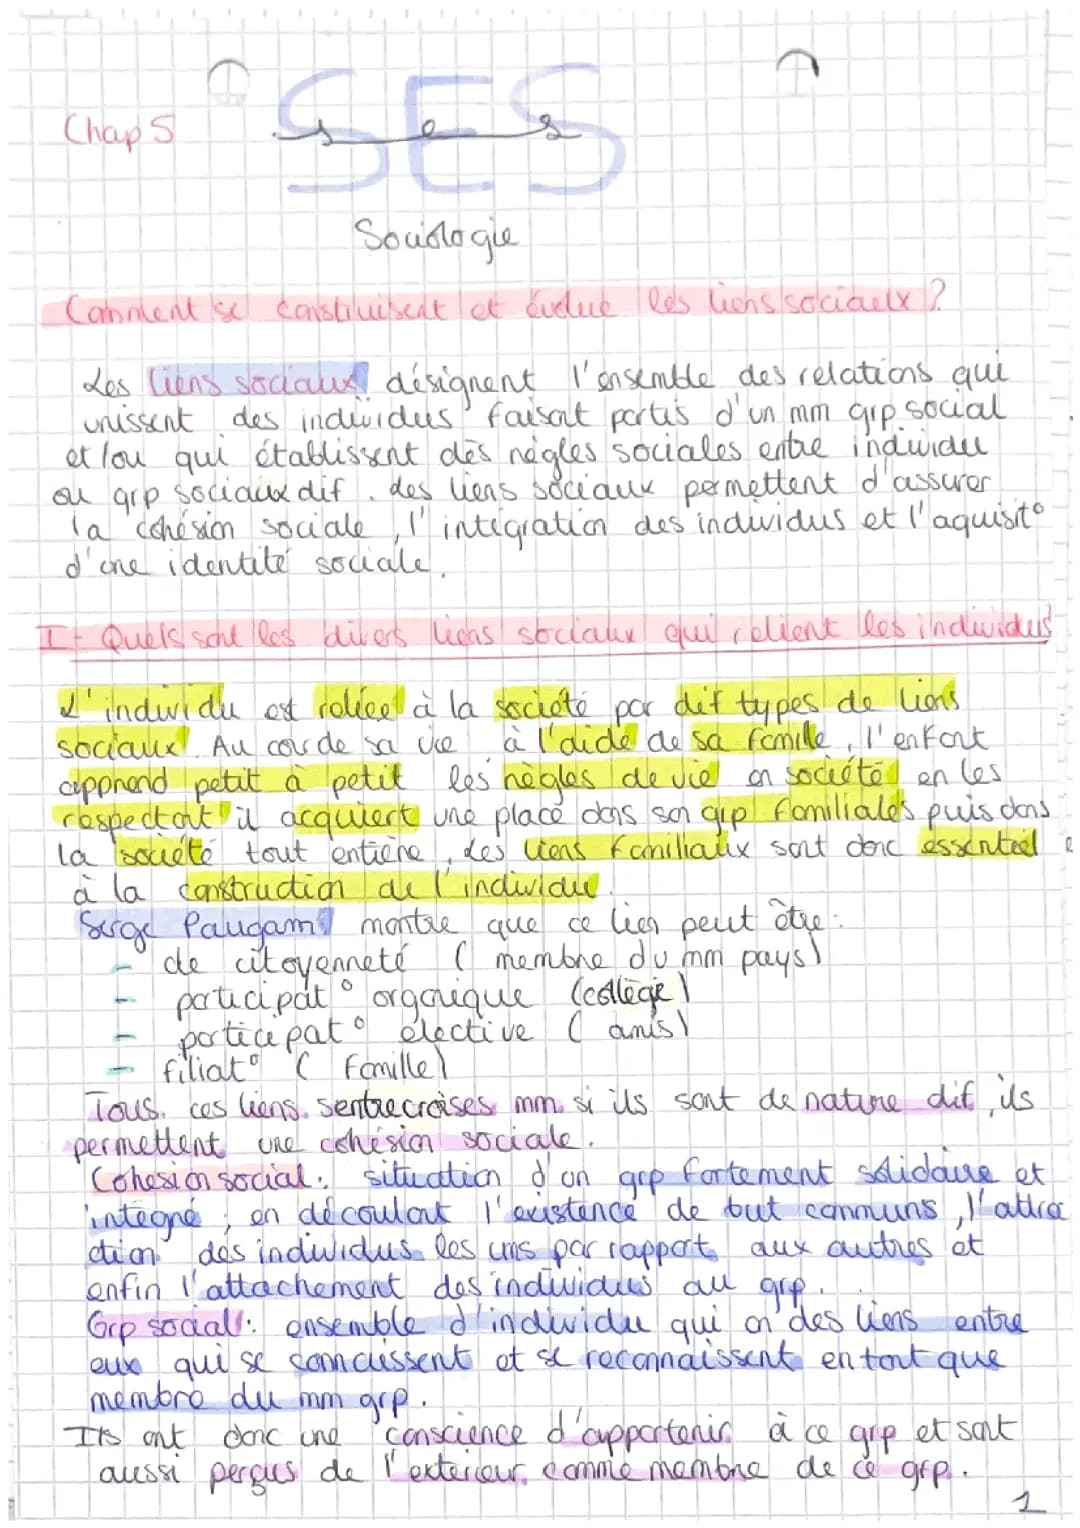 SES
Chap 5
s e s
Sociologie
Comment se construisent et évolue les liens sociaux ?
Les liens sociaux désignent l'ensemble des relations qui
unissent des individus faisant partis d'un mm grp social
et/ou qui établissent des règles sociales entre individu
ou grp sociaux dif. Les liens sociaux permettent d'assurer
la cohésion sociale, l'intégration des individus et l'aquisit°
d'une identité sociale.
I - Quels sont les divers liens sociaux qui relient les individus
L'individu est reliée à la société par dif types de liens
sociaux. Au cour de sa vie à l'aide de sa famille, l'enfant
apprend petit à petit les règles de vie en société en les
respectant il acquiert une place dans son grp familiales puis dans
la société tout entière, les liens familiaux sont donc essentiel
à la construction de l'individu.
Serge Paugam montre que ce lien peut être :
- de citoyenneté ( membre du mm pays)
- participat° organique (collège)
- participat° élective ( amis)
- filiat° ( famille)
Tous ces liens s'entrecroises mm si ils sont de nature dif, ils
permettent une cohésion sociale.
Cohesion social : situation d'un grp fortement solidaire et
intégré, en découlant l'existence de but communs, l'attra
ction des individus les uns par rapport aux autres et
enfin l'attachement des individus au grp.
Grp social : ensemble d'individu qui on des liens entre
eux qui se connaissent et se reconnaissent en tant que
membre du mm grp.
Ils ont donc une conscience d'appartenir à ce grp et sont
aussi perçus de l'exterieur comme membre de ce grp.
1